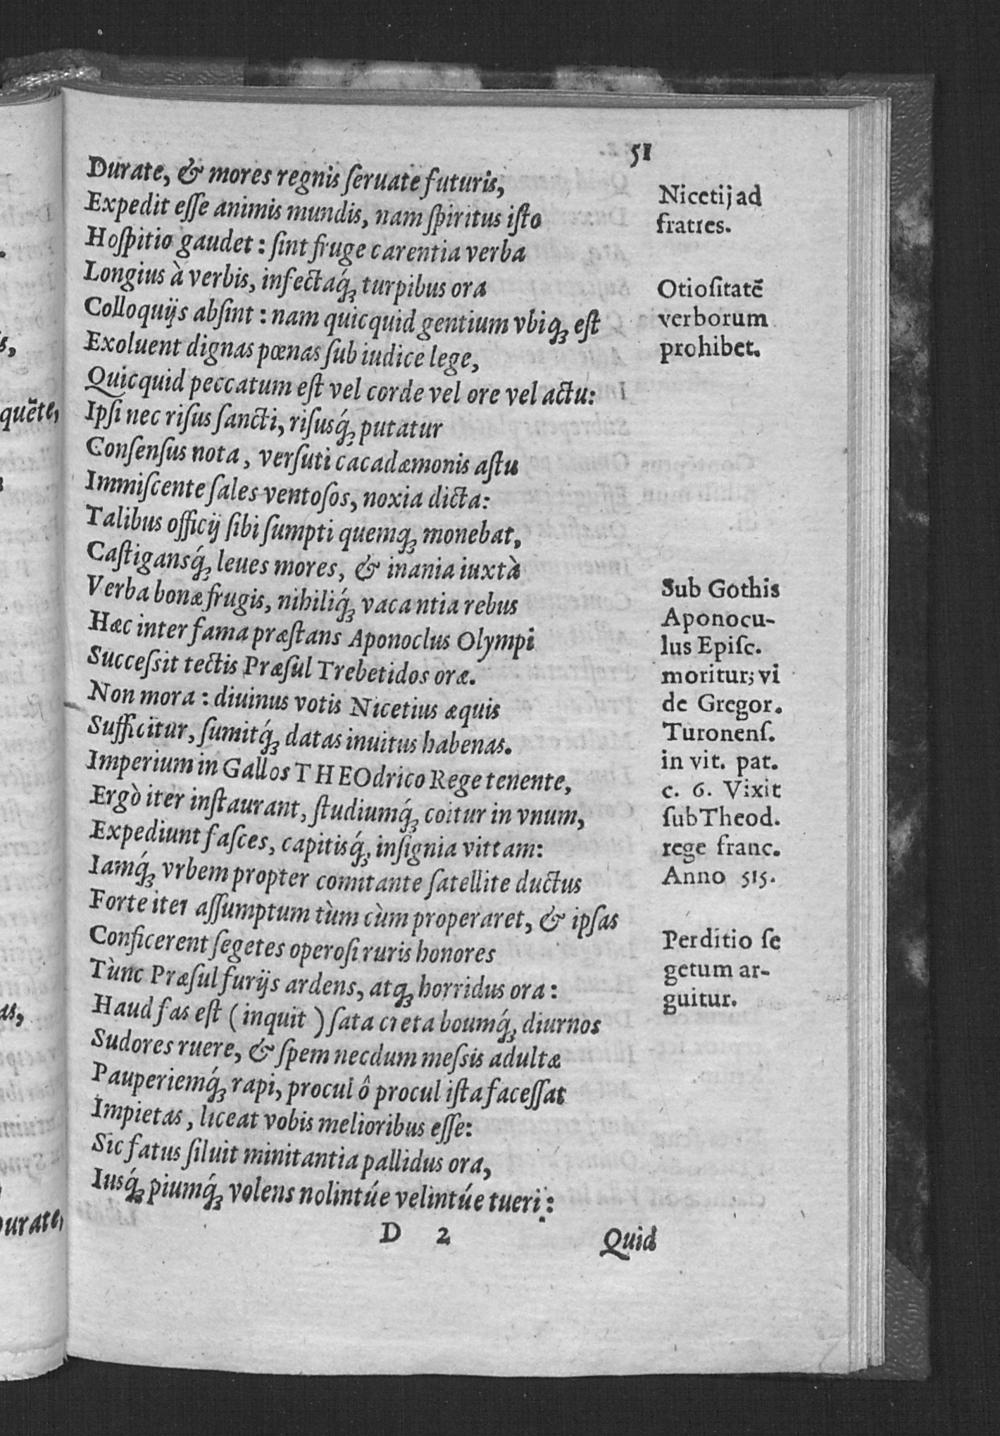 51
Durate, & mores regnis ſeruate futuris,
Expedit eſſe animis mundis, nam ſpiritus iſto
Hoſpitio gaudet: ſint fruge carentia verba
Longius à verbis, infectaq́ꝫ turpibus ora
Colloquijs abſint: nam quicquid gentium vbiqꝫ eſt
Exoluent dignas pœnas ſub iudice lege,
Quicquid peccatum eſt vel corde vel ore vel actu:
Ipſi nec riſus ſancti, riſusq́ꝫ putatur
Conſenſus nota, verſuti cacadæmonis aſtu
Immiſcente ſales ventoſos, noxia dicta:
Talibus officij ſibi ſumpti quemqꝫ monebat,
Caſtigansq́ꝫ leues mores, & inania iuxtà
Verba bonæ frugis, nihiliq́ꝫ vacantia rebus
Hæc inter fama præſtans Aponoclus Olympi
Succeſsit tectis Præſul Trebetidos oræ.
Non mora: diuinus votis Nicetius æquis
Sufficitur, ſumitq́ꝫ datas inuitus habenas.
Imperium in Gallos THEOdrico Rege tenente,
Ergò iter inſtaurant, ſtudiumq́ꝫ coitur in vnum,
Expediunt faſces, capitisq́ꝫ inſignia vittam:
Iamq́ꝫ vrbem propter comitante ſatellite ductus
Forte iter aſſumptum tùm cùm properaret, & ipſas
Conficerent ſegetes operoſi ruris honores
Tùnc Præſul furijs ardens, atqꝫ horridus ora:
Haud fas eſt (inquit) ſata creta boumq́ꝫ diurnos
Sudores ruere, & ſpem necdum meſsis adultæ
Pauperiemq́ꝫ rapi, procul ô procul iſta faceſſat
Impietas, liceat vobis melioribus eſſe:
Sic fatus ſiluit minitantia pallidus ora,
Iusq́ꝫ piumq́ꝫ volens nolintúe velintúe tueri:
D 2 Quid
Nicetij ad
fratres.
Otioſitatē
verborum
prohibet.
Sub Gothis
Aponocu-
lus Epiſc.
moritur; vi
de Gregor.
Turonenſ.
in vit. pat.
c. 6. Vixit
ſub Theod.
rege franc.
Anno 515.
Perditio ſe
getum ar-
guitur.
quēte,
urate,